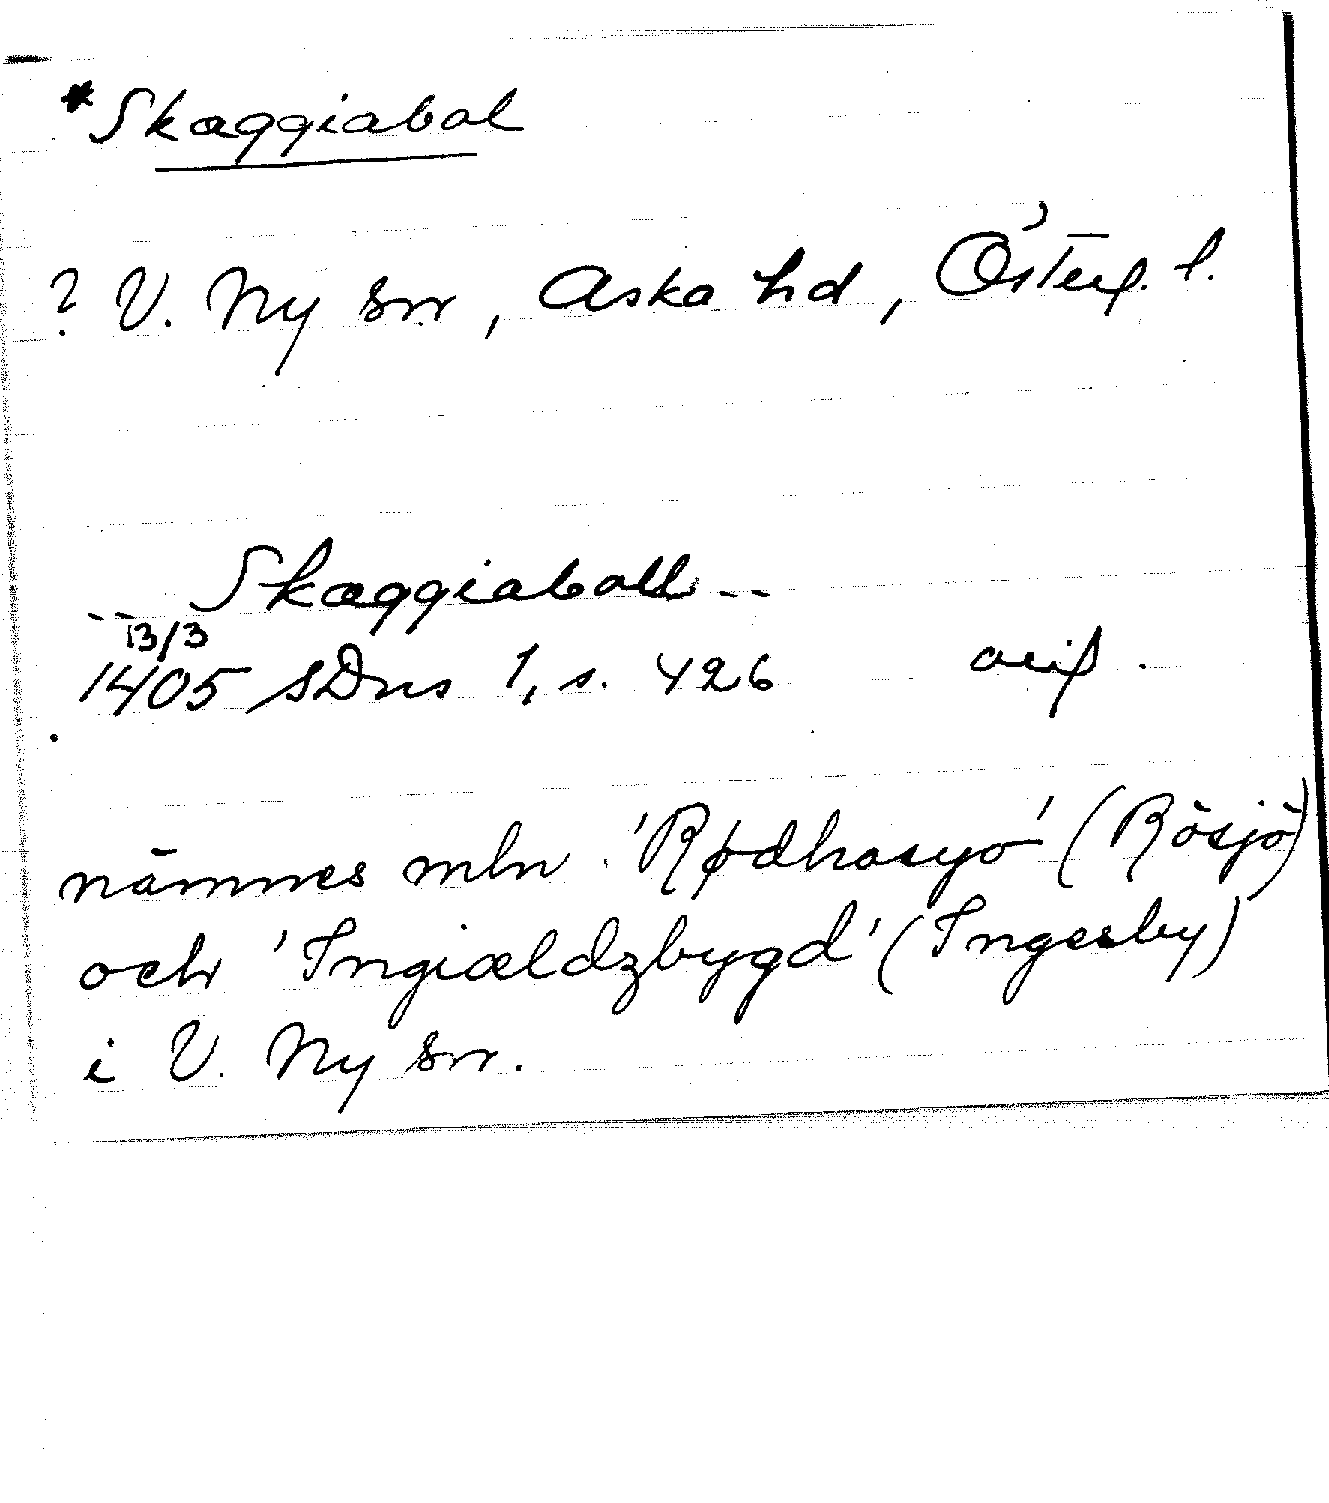 *Skæggiabol
? V. Ny sn, Aska hd, Österg. l.
-- Skæggiaboll --
13/3
1405 SDns 1, s. 426 orig.
nämnes mln 'Rødhosyo' (Rösjö)
och 'Ingiældzbygd' (Ingesby)
i V. Ny sn.